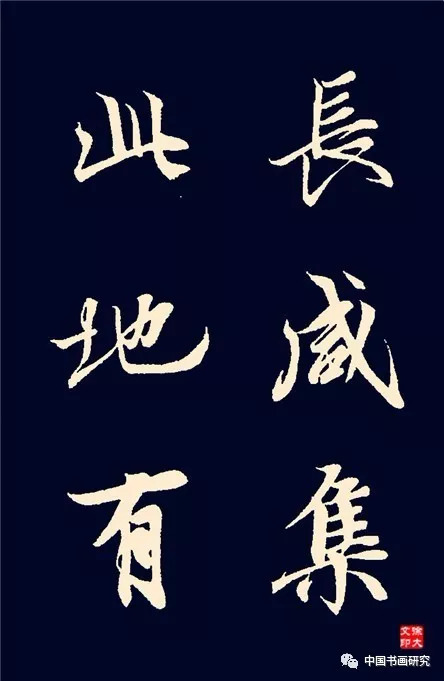 長咸集
此地有
徐大
文印
中国书画研究